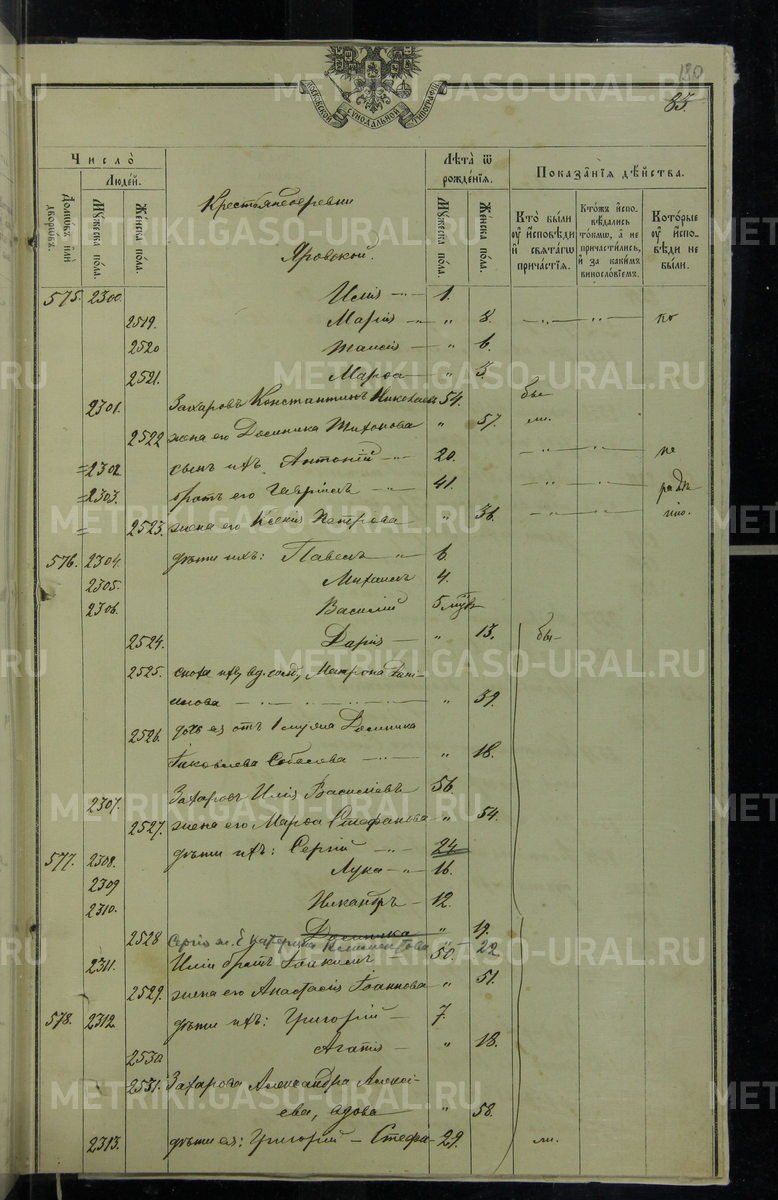 130
83.
МОСКОВСКОЙ СѴНОДАЛЬНОЙ ТИПОГРАФІИ
Число̀
Людей.
Домовъ или дворовъ.
Мꙋжеска пола.
Женска пола.
Крестьяне деревни
Яровской.
Лѣта ѿ рожденїѧ.
Мꙋжеска пола.
Женска пола.
Показанїѧ дѣйства.
Кто были ꙋ исповѣди и свѧтагѡ причастїѧ.
Ктожъ исповѣдались токмѡ, а не причастились, и за какимъ винословїемъ.
Которые ꙋ исповѣди не были.
575. 2300. Илія — 1.
2519. Марія — " 8. — " — " — по
2520 Таисія — " 6.
2521. Марѳа — " 3.
2301. Захаровъ Константинъ Николаевъ 54. бы-
2522 жена его Домника Тихонова " 57. ли.
=2302 сынъ ихъ Антоній — 20. — " — " — не
=2303. братъ его Гавріилъ — 41. — " — " — радѣ
= 2523. жена его Ксенія Петрова " 36. — " — " — нію.
576. 2304. дѣти ихъ: Павелъ " 6.
2305. Михаилъ 4.
2306. Василій 5 мцѣ
2524. Дарія — " 13. бы-
2525. сноха ихъ, вд. солд., Матрона
— " 39.
2526. дочь ея отъ 1 мужа Домника
Іаковлева — " 18.
2307. Захаровъ Илія Василіевъ 56.
2527. жена его Марѳа Стефанова " 54.
577. 2308. дѣти ихъ: Сергій — 24
2309 Лука — " 16.
2310. Никандръ — 12.
2528 Домника " 17.
Сергія ж. Екатерина Климентова 22
2311. Иліи братъ Іоакимъ 50.
2529. жена его Анастасія Іоаннова " 51.
578. 2312. дѣти ихъ: Григорій — 7.
2530 Агапія — " 18.
2531. Захарова Александра Алексі-
ева, вдова " 58.
2313. дѣти ея: Григорій — Стефа- 29. ли.
METRIKI.GASO-URAL.RU